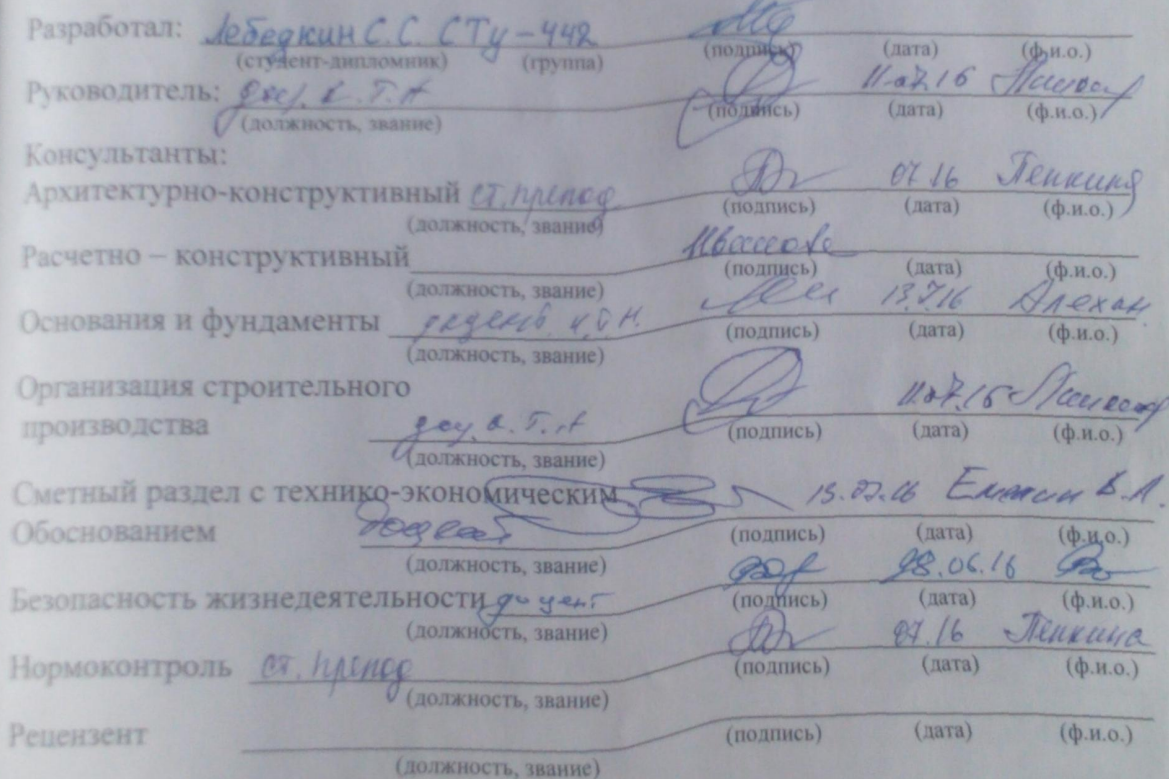 Разработал: Лебедкин С.С. СТу-442
(студент-дипломник) (группа) (подпись) (дата) (ф.и.о.)
Руководитель: доц. к.т.н 11.07.16
(должность, звание) (подпись) (дата) (ф.и.о.)
Консультанты:
Архитектурно-конструктивный ст. препод 07.16 Пенкина
(должность, звание) (подпись) (дата) (ф.и.о.)
Расчетно – конструктивный
(должность, звание) (подпись) (дата) (ф.и.о.)
Основания и фундаменты доцент, к.т.н. 13.7.16 Алехан
(должность, звание) (подпись) (дата) (ф.и.о.)
Организация строительного
производства доц. к.т.н 11.07.16
(должность, звание) (подпись) (дата) (ф.и.о.)
Сметный раздел с технико-экономическим 13.07.16 В.А.
Обоснованием доцент (подпись) (дата) (ф.и.о.)
(должность, звание)
Безопасность жизнедеятельности доцент 28.06.16
(должность, звание) (подпись) (дата) (ф.и.о.)
Нормоконтроль ст. препод 07.16 Пенкина
(должность, звание) (подпись) (дата) (ф.и.о.)
Рецензент
(должность, звание) (подпись) (дата) (ф.и.о.)